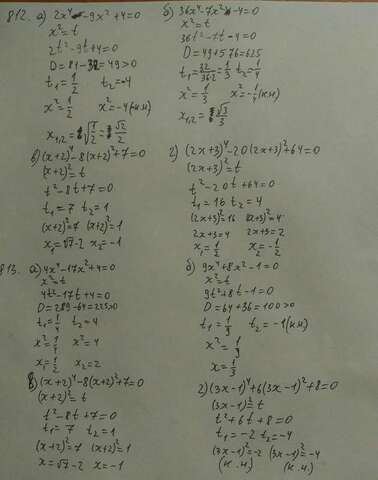 812. а) 2x⁴ - 9x² + 4 = 0
x² = t
2t² - 9t + 4 = 0
D = 81 - 32 = 49 > 0
t₁ = 1/2 t₂ = -4
x² = 1/2 x² = -4 (к.н.)
x₁,₂ = √1/2 = √2/2
б) 36x⁴ - 7x² - 4 = 0
x² = t
36t² - 7t - 4 = 0
D = 49 + 576 = 625
t₁ = 32/36·2 = 1/3 t₂ = -1/4
x² = 1/3 x² = -1/4 (к.н.)
x₁,₂ = √3/3
в) (x+2)⁴ - 8(x+2)² + 7 = 0
(x+2)² = t
t² - 8t + 7 = 0
t₁ = 7 t₂ = 1
(x+2)² = 7 (x+2)² = 1
x₁ = √7 - 2 x₂ = -1
г) (2x+3)⁴ - 20(2x+3)² + 64 = 0
(2x+3)² = t
t² - 20t + 64 = 0
t₁ = 16 t₂ = 4
(2x+3)² = 16 (2x+3)² = 4
2x+3 = 4 2x+3 = 2
x₁ = 1/2 x₂ = -1/2
813. а) 4x⁴ - 17x² + 4 = 0
x² = t
4t² - 17t + 4 = 0
D = 289 - 64 = 225 > 0
t₁ = 1/4 t₂ = 4
x² = 1/4 x² = 4
x₁ = 1/2 x₂ = 2
б) 9x⁴ + 8x² - 1 = 0
x² = t
9t² + 8t - 1 = 0
D = 64 + 36 = 100 > 0
t₁ = 1/9 t₂ = -1 (к.н.)
x² = 1/9
x = 1/3
в) (x+2)⁴ - 8(x+2)² + 7 = 0
(x+2)² = t
t² - 8t + 7 = 0
t₁ = 7 t₂ = 1
(x+2)² = 7 (x+2)² = 1
x = √7 - 2 x = -1
г) (3x-1)⁴ + 6(3x-1)² + 8 = 0
(3x-1)² = t
t² + 6t + 8 = 0
t₁ = -2 t₂ = -4
(3x-1)² = -2 (3x-1)² = -4
(к.н.) (к.н.)